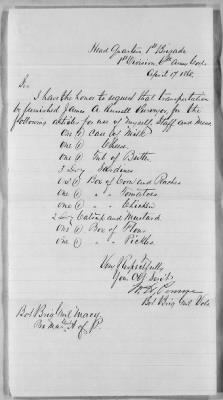 Head Quarters 1st Brigade
1st Division 6th Army Corps
April 17 1865
Sir
I have the honor to request that transportation
be furnished James A. Purveyor, for the
following articles for use of myself, Staff and Mess
One (1) Can of Milk
One (1) Cheese
One (1) Tub of Butter
3 Doz Sardines
One (1) Box of Corn and Peaches
One (1) " " Tomatoes
One (1) " " Chicken
2 Doz Catsup and Mustard
One (1) Box of Flour
One (1) " " Pickles
Very Respectfully
Your Obt Servt
Bvt Brig Genl Vols
Bvt Brig Genl Macy
Pro Mar. A of P.